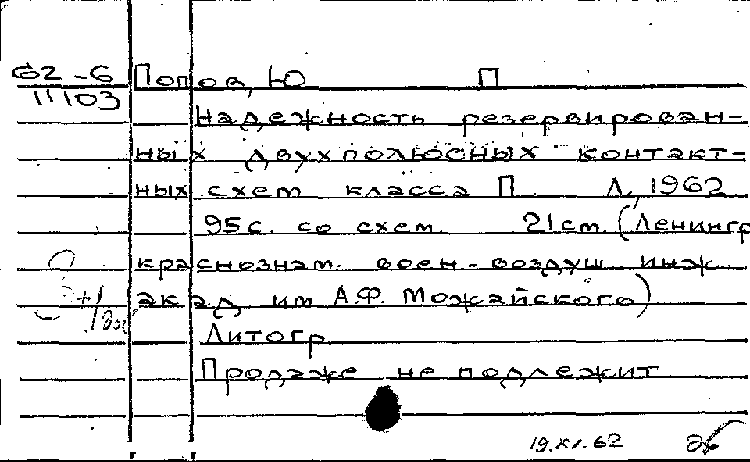 62-6 Попов, Ю П
11103
Надежность резервирован-
ных двухполюсных контакт-
ных схем класса П Л, 1962
95с. со схем. 21см. (Ленингр
краснознам. воен.-воздуш инж
акад им А.Ф. Можайского)
Литогр
Продаже не подлежит
19.XI.62